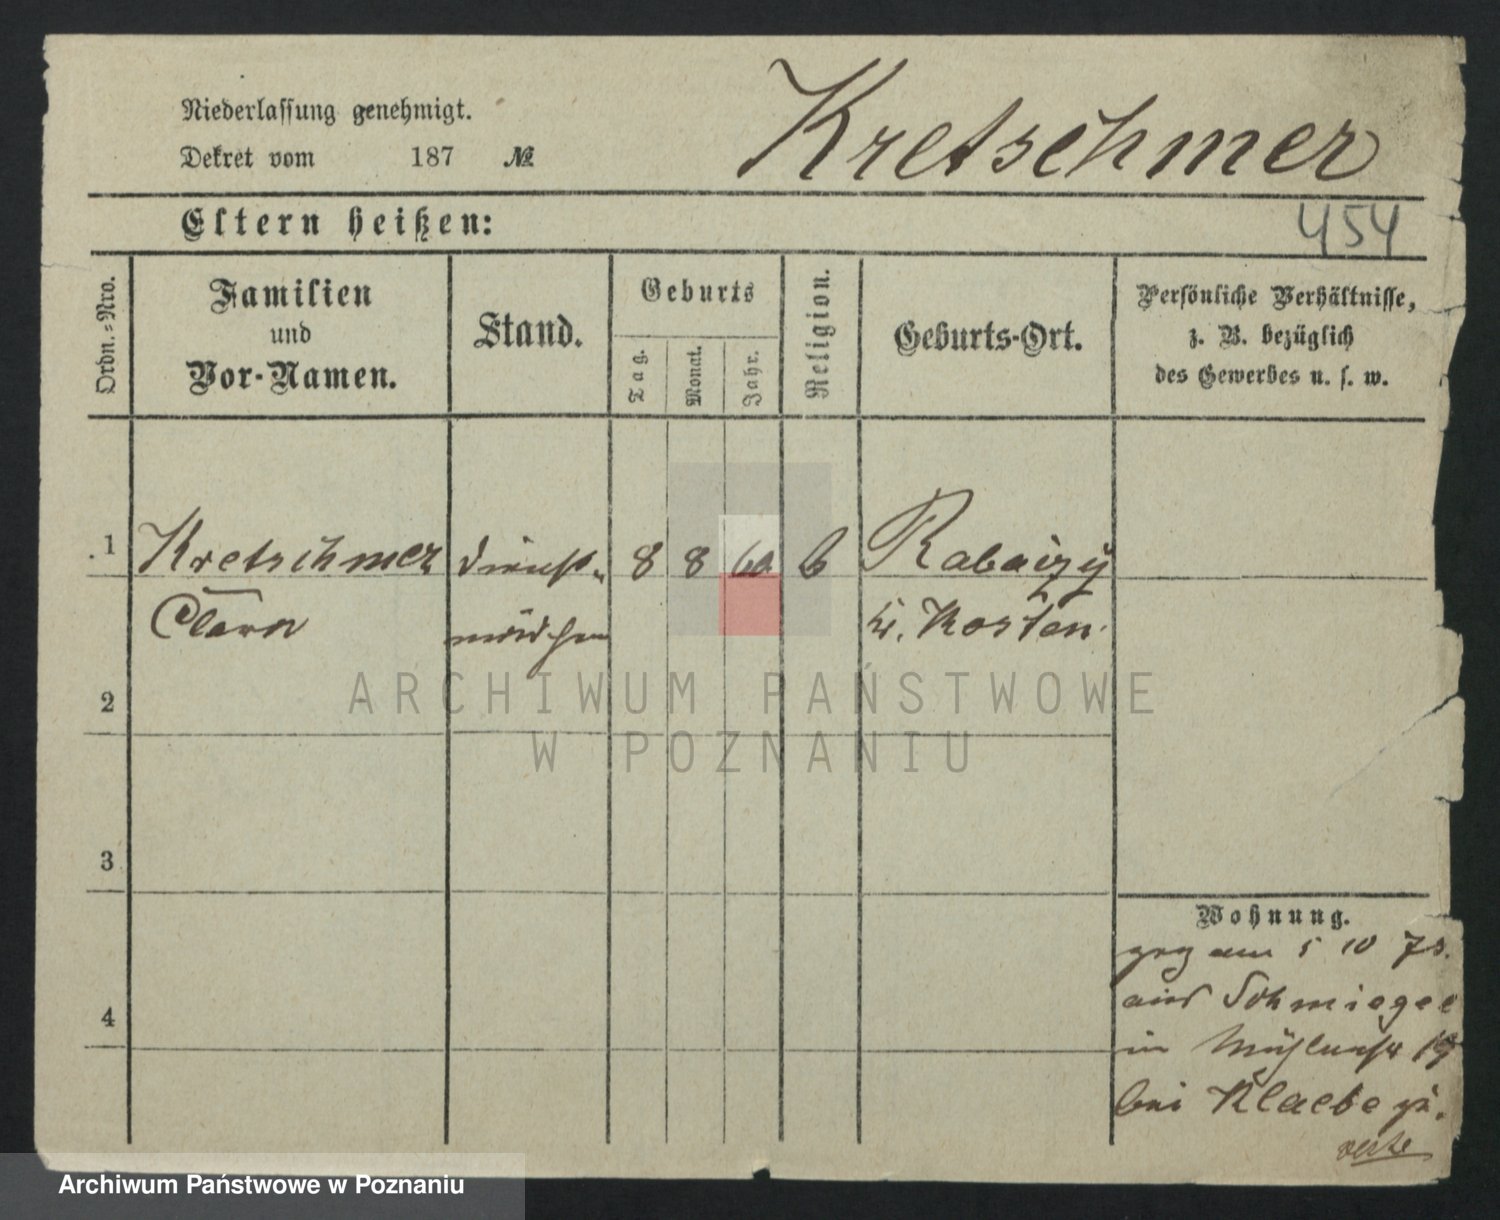 Niederlassung genehmigt.
Dekret vom 187 №
Kretschmer
Eltern heißen:
454
Ordn.-Nro.
Familien
und
Vor-Namen.
Stand.
Geburts
Tag.
Monat.
Jahr.
Religion.
Geburts-Ort.
Persönliche Verhältnisse,
z. B. bezüglich
des Gewerbes u. s. w.
1 Kretschmer Dienst- 8 8 60
Clara mädchen Kr. Kosten
2
3
4
Wohnung.
am 5 10 78.
aus Schmiegel
in Mühlenstr 19
bei Klaebe
ARCHIWUM PAŃSTWOWE
W POZNANIU
Archiwum Państwowe w Poznaniu